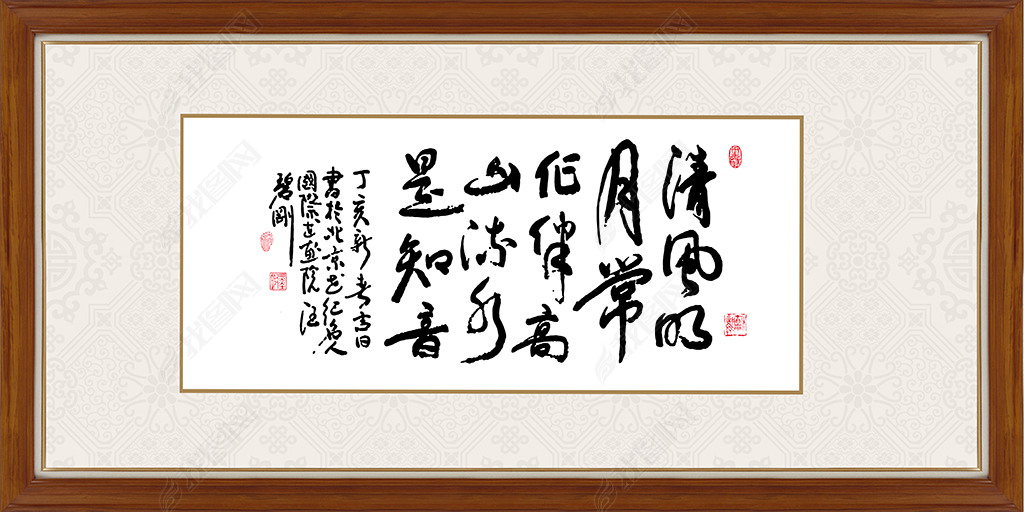 清風明
月常
作伴高
山流水
是知音
丁亥新春吉日
書於北京世纪名人
國際書画院汪
碧剛